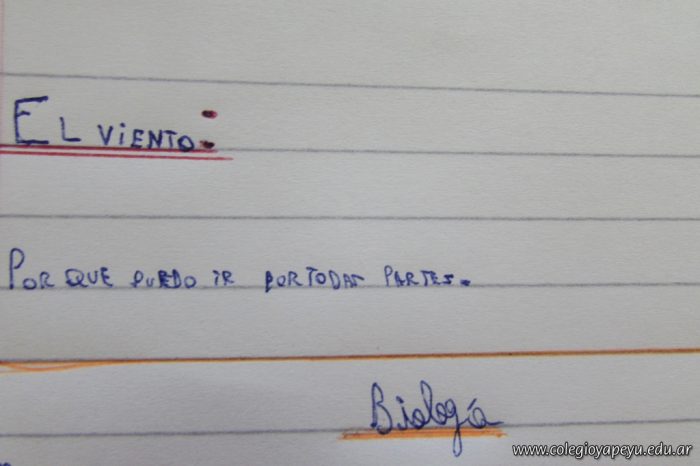 EL VIENTO:
POR QUE PUEDO IR POR TODAS PARTES.
Biología
www.colegioyapeyu.edu.ar